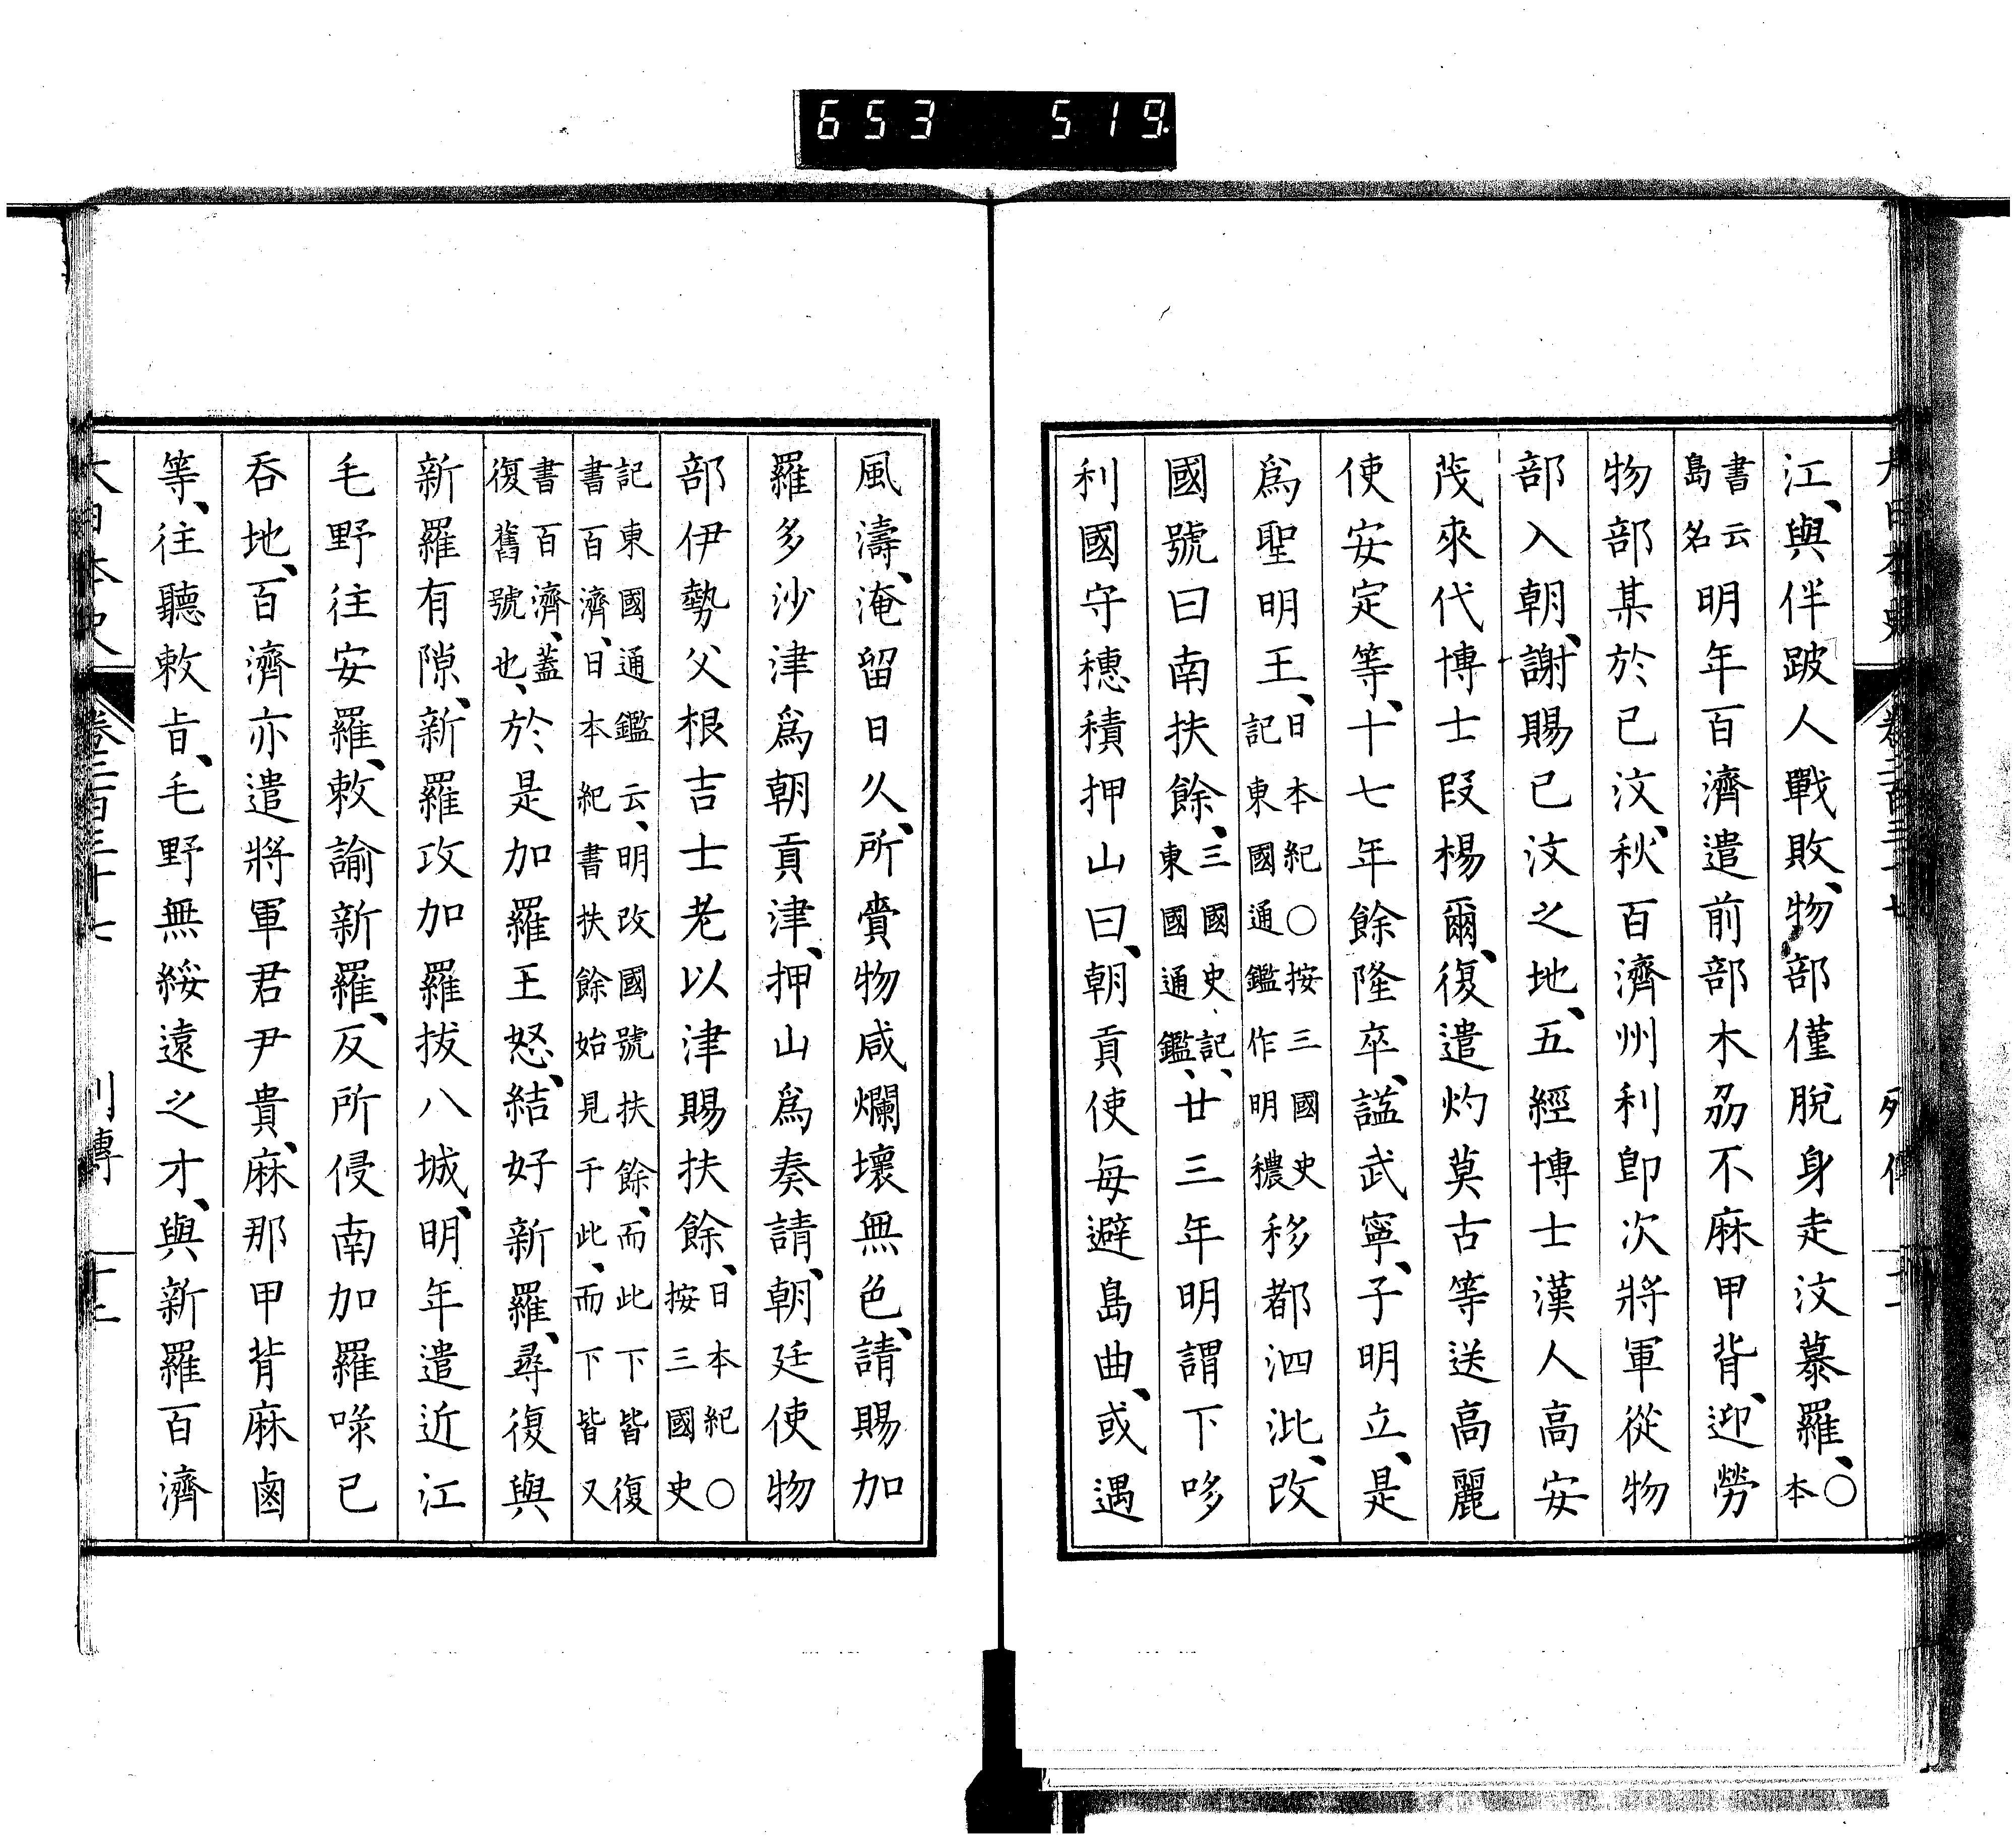 653 519.
江、與伴跛人戰敗、物部僅脫身走汶慕羅、○本
書云島名明年百濟遣前部木刕不麻甲背、迎勞
物部某於已汶、秋百濟州利卽次將軍從物
部入朝、謝賜已汶之地、五經博士漢人高安
茂來代博士段楊爾、復遣灼莫古等送高麗
使安定等、十七年餘隆卒、謚武寧、子明立、是
爲聖明王、日本紀○按三國史記東國通鑑作明襛移都泗沘、改
國號曰南扶餘、三國史記、東國通鑑、廿三年明謂下哆
利國守穗積押山曰、朝貢使每避島曲、或遇
風濤、淹留日久、所賫物咸爛壞無色、請賜加
羅多沙津爲朝貢津、押山爲奏請、朝廷使物
部伊勢父根吉士老以津賜扶餘、日本紀○按三國史
記東國通鑑云、明改國號扶餘、而此下皆復書百濟、日本紀書扶餘始見于此、而下皆又
書百濟、蓋復舊號也、於是加羅王怒、結好新羅、尋復與
新羅有隙、新羅攻加羅拔八城、明年遣近江
毛野往安羅、敕諭新羅、反所侵南加羅㖨己
呑地、百濟亦遣將軍君尹貴、麻那甲背麻鹵
等、往聽敕旨、毛野無綏遠之才、與新羅百濟
大日本史 卷二百三十七 列傳